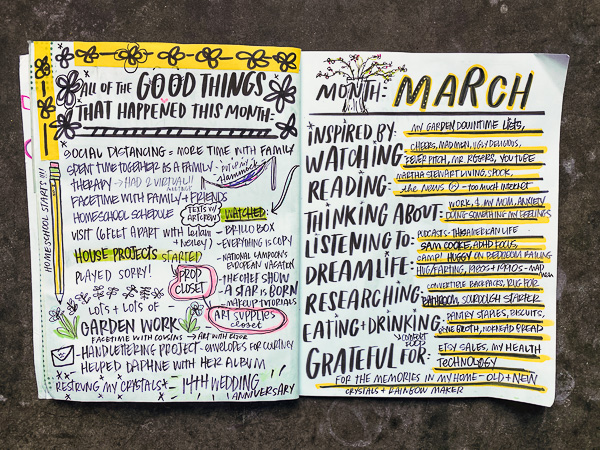 HOMESCHOOL STARTS!!!
ALL OF THE GOOD THINGS
THAT HAPPENED THIS MONTH:
SOCIAL DISTANCING = MORE TIME WITH FAMILY
SPENT TIME TOGETHER AS A FAMILY - PUT UP MY Hammock
THERAPY → HAD 2 VIRTUAL!!
FACETIME WITH FAMILY + FRIENDS
HOMESCHOOL SCHEDULE
TEXTS W/
ART CREW
VISIT (6 FEET APART WITH
HOUSE PROJECTS STARTED
PLAYED SORRY!
PROP
CLOSET
WATCHED:
- BRILLO BOX
- EVERYTHING IS COPY
- NATIONAL LAMPOON'S
EUROPEAN VACATION
- THE CHEF SHOW
- A STAR IS BORN
- MAKEUP TUTORIALS
ART SUPPLIES
closet
LOTS + LOTS OF
GARDEN WORK
FACETIME WITH COUSINS → ART WITH
- HANDLETTERING PROJECT - ENVELOPES FOR COURTNEY
HELPED DAPHNE WITH HER ALBUM
RESTRUNG MY CRYSTALS + - 14TH WEDDING
ANNIVERSARY
MONTH: MARCH
INSPIRED BY: MY GARDEN, DOWNTIME, LISTS,
WATCHING: CHEERS, MAD MEN, UGLY DELICIOUS,
FEVER PITCH, MR. ROGERS, YOU TUBE
READING: MARTHA STEWART LIVING, SPOCK,
the news - TOO MUCH INTERNET
THINKING ABOUT: WORK, MY MOM, ANXIETY
DOING SOMETHING, MY FEELINGS
LISTENING TO: PODCASTS - THIS AMERICAN LIFE
SAM COOKE, ADHD FOCUS,
DREAM LIFE: CAMP! HUGGY ON BEDROOM RAILING
HUG/FARTING, 1980s + 1990s - MAD
RESEARCHING: CONVERTIBLE BACKPACKS, RUG FOR
BATHROOM, SOURDOUGH STARTER
EATING + DRINKING: PANTRY STAPLES, BISCUITS,
BONE BROTH, NO KNEAD BREAD
→ COMFORT
FOOD
GRATEFUL FOR: ETSY SALES, MY HEALTH
TECHNOLOGY
FOR THE MEMORIES IN MY HOME - OLD + NEW
CRYSTALS + RAINBOW MAKER